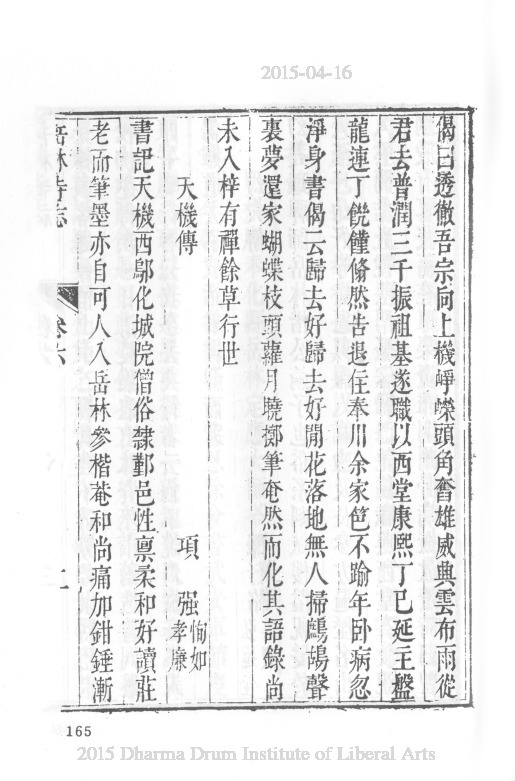 2015-04-16
偈曰透徹吾宗向上機崢嶸頭角奮雄威興雲布雨從
君去普潤三千振祖基遂職以西堂康熙丁巳延主盤
龍連丁饑饉翛然告退住奉川余家笆不踰年卧病忽
淨身書偈云歸去好歸去好開花落地無人掃鷓鴣聲
裏夢還家蝴蝶枝頭蘿月曉擲筆奄然而化其語錄尚
未入梓有禪餘草行世
天機傳
項强恂如孝廉
書記天機西鄔化城院僧俗隸鄞邑性禀柔和好讀莊
老而筆墨亦自可人入岳林參楷菴和尚痛加鉗錘漸
岳林寺志 卷六
165
2015 Dharma Drum Institute of Liberal Arts